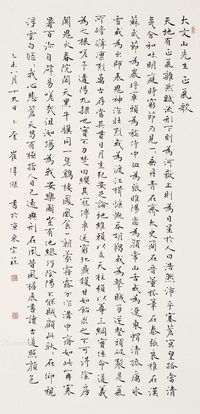 文文山先生正氣歌
天地有正氣雜然賦流形下則為河嶽上則為日星於人曰浩然沛乎塞蒼冥皇路當清
夷含和吐明庭時窮節乃見一一垂丹青在齊太史簡在晉董狐筆在秦張良椎在漢
蘇武節為嚴將軍頭為嵇侍中血為張睢陽齒為顏常山舌或為遼東帽清操厲冰
雪或為出師表鬼神泣壯烈或為渡江楫慷慨吞胡羯或為擊賊笏逆豎頭破裂是氣
所磅礴凜烈萬古存當其貫日月生死安足論地維賴以立天柱賴以尊三綱實係命道義
為之根嗟予遘陽九隸也實不力楚囚纓其冠傳車送窮北鼎鑊甘如飴求之不可得陰房
闃鬼火春院閟天黑牛驥同一皂雞棲鳳凰食一朝蒙霧露分作溝中瘠如此再寒
暑百沴自辟易嗟哉沮洳場為我安樂國豈有他繆巧陰陽不能賊顧此耿耿在仰視
浮雲白悠悠我心悲蒼天曷有極哲人日已遠典刑在夙昔風簷展書讀古道照顏色
乙未八月十九日 崔 書於京東